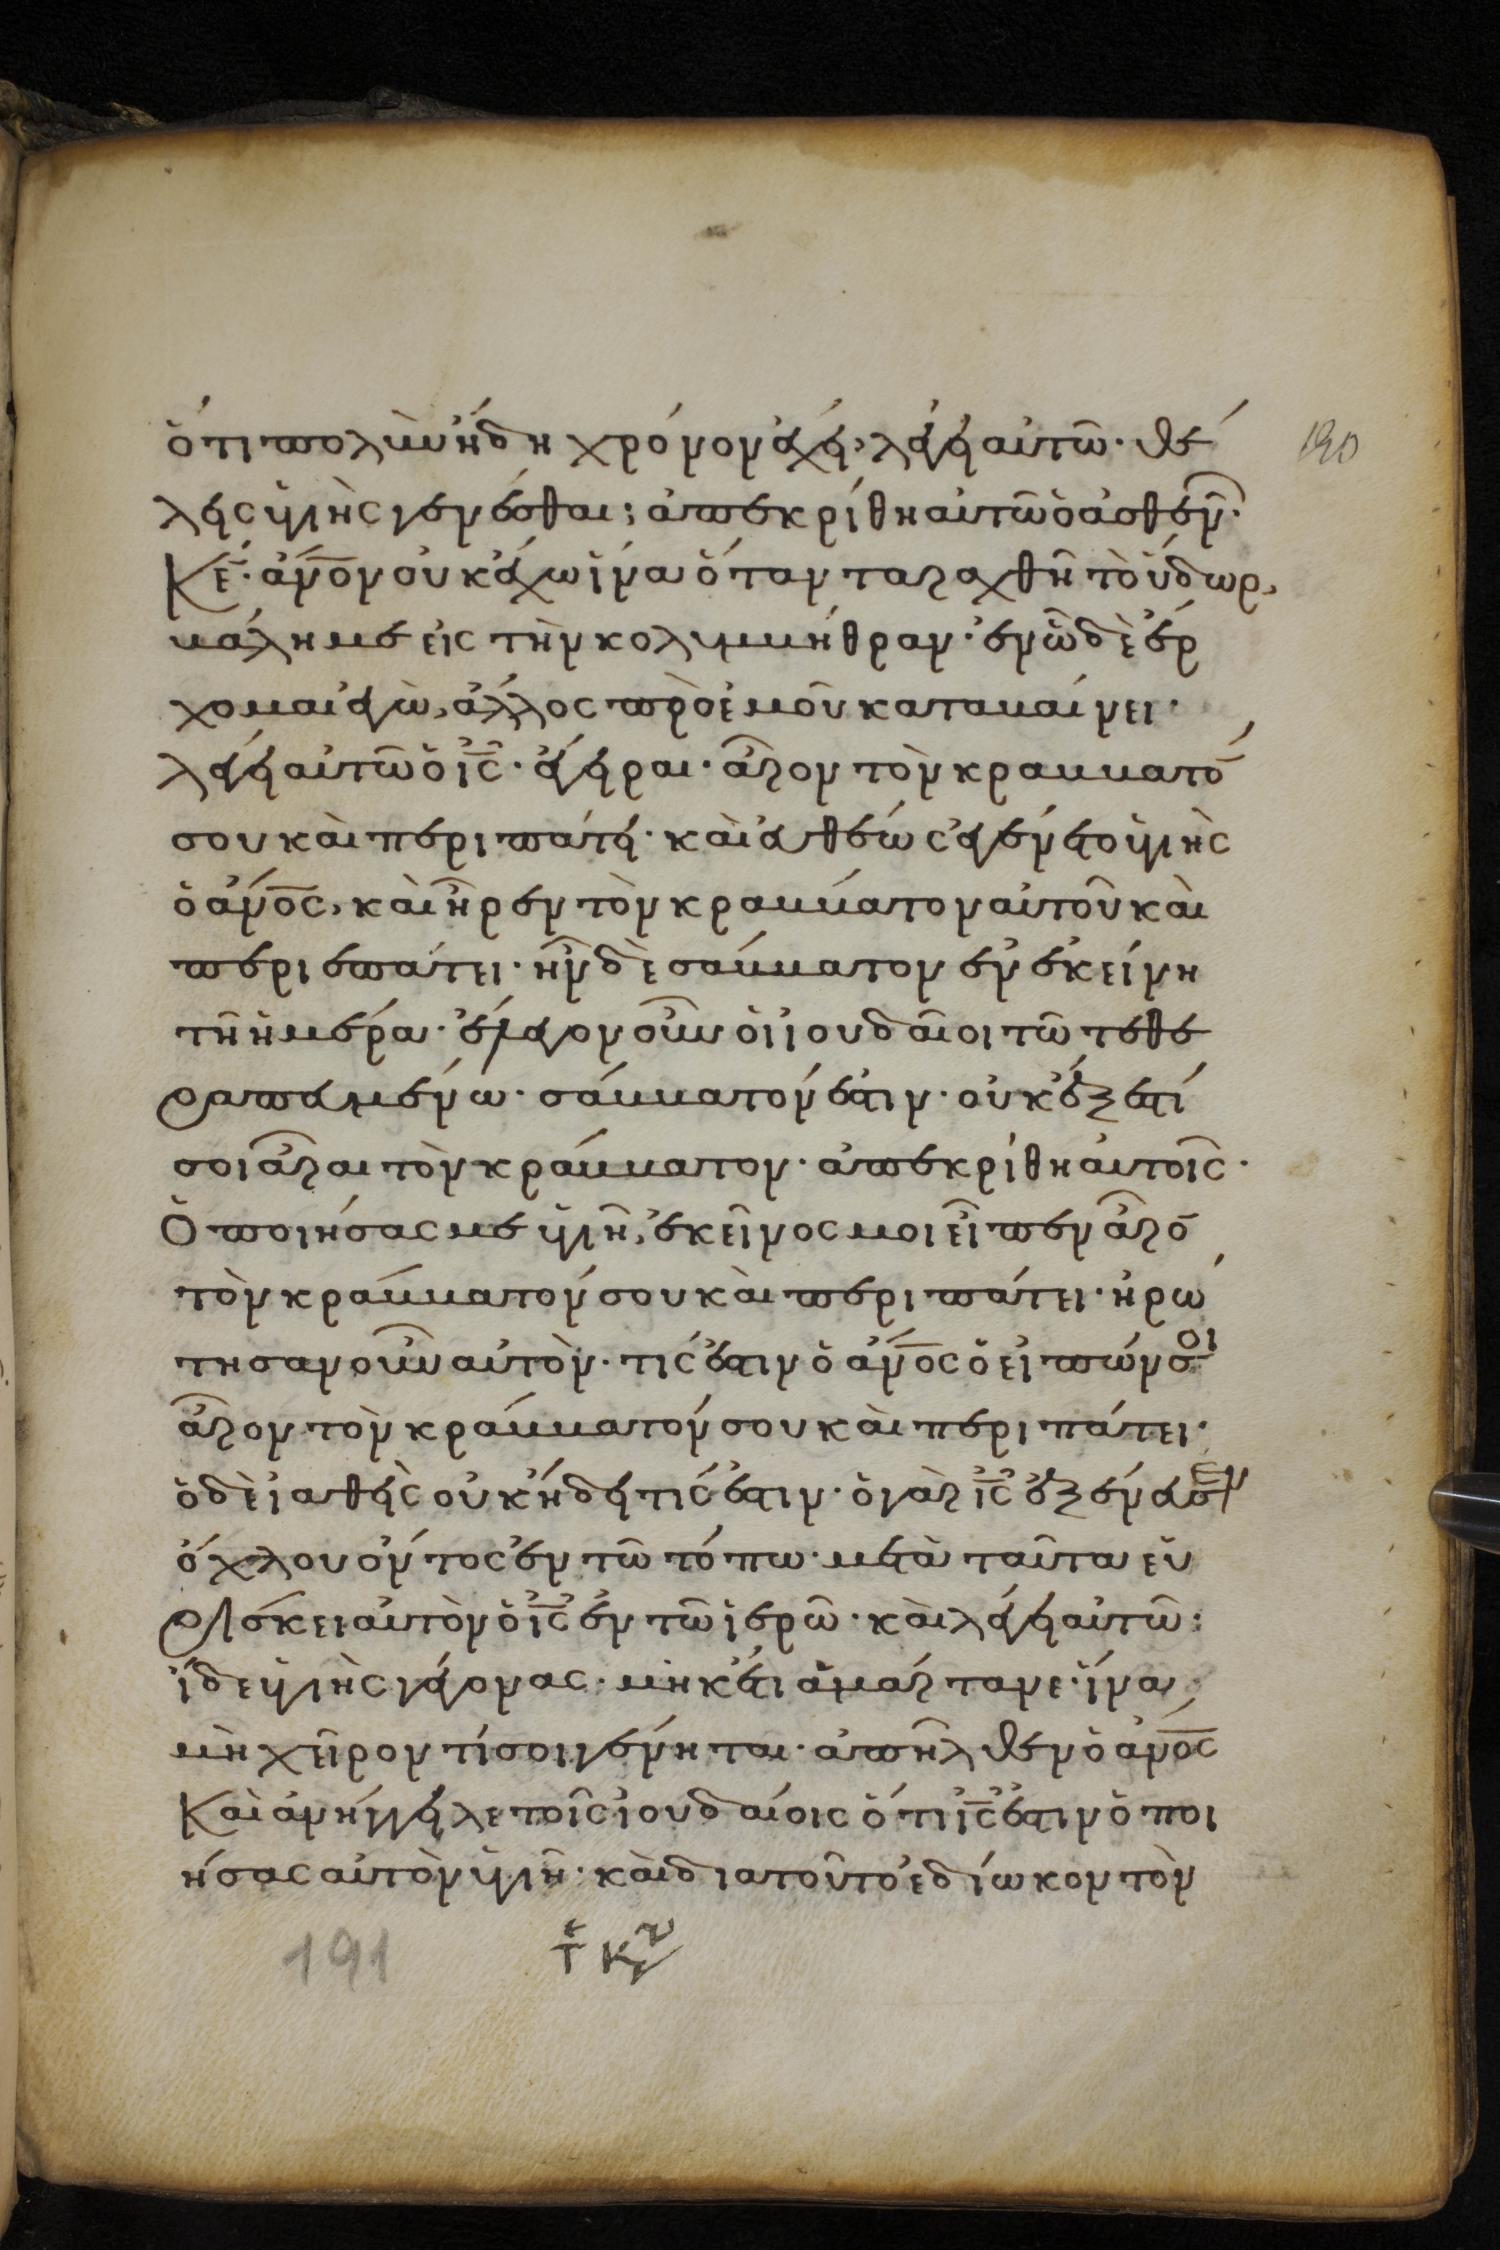 ὅτι πολὺν ἤδη χρόνον ἔχει, λέγει αὐτῶ· θέ
λεις ὑγιὴς γενέσθαι; ἀπεκρίθη αὐτῶ ὁ ἀσθενῶν·
Κε· ἀνον οὐκ ἔχω ἵνα ὅταν ταραχθῆ τὸ ὕδωρ,
βάλη με εἰς τὴν κολυμβήθραν· ἐν ὧ δὲ ἔρ
χομαι ἐγὼ, ἄλλος πρὸ ἐμοῦ καταβαίνει·
λέγει αὐτῶ ὁ ις· ἔγειραι· ἆρον τὸν κραββατό
σου καὶ περιπάτει· καὶ εὐθέως ἐγένετο ὑγιὴς
ὁ ἀνος, καὶ ἦρεν τὸν κράββατον αὐτοῦ καὶ
περιεπάτει· ἦν δὲ σάββατον ἐν ἐκείνη
τῆ ἡμέρα· ἔλεγον οὖν οἱ ἰουδαῖοι τῶ τεθε
ραπευμένω· σάββατόν ἐστιν· οὐκ ἔξεστί
σοι ἆραι τὸν κράββατον· ἀπεκρίθη αὐτοῖς·
Ὁ ποιήσας με ὑγιῆ, ἐκεῖνος μοι εἶπεν ἆρο
τὸν κράββατόν σου καὶ περιπάτει· ἠρώ
τησαν οὖν αὐτὸν· τίς ἐστιν ὁ ἀνος ὁ εἰπών σοι
ἆρον τὸν κράββατόν σου καὶ περιπάτει·
ὁ δὲ ἰαθεὶς οὐκ ἤδει τίς ἐστιν· ὁ γὰρ ις ἐξένευσεν
ὄχλου ὄντος ἐν τῶ τόπω· μετὰ ταῦτα εὑ
ρίσκει αὐτὸν ὁ ις ἐν τῶ ἱερῶ· καὶ λέγει αὐτῶ:
ἴδε ὑγιὴς γέγονας· μὴκέτι ἁμάρτανε· ἵνα
μὴ χεῖρον τί σοι γένηται· ἀπῆλθεν ὁ ἀνος
Καὶ ἀνήγγειλε τοῖς ἰουδαίοις ὅτι ις ἐστιν ὁ ποι
ήσας αὐτὸν ὑγιῆ· καὶ διατοῦτο ἐδίωκον τὸν
190
191